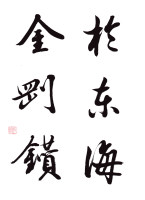 於东海
金剛鑽